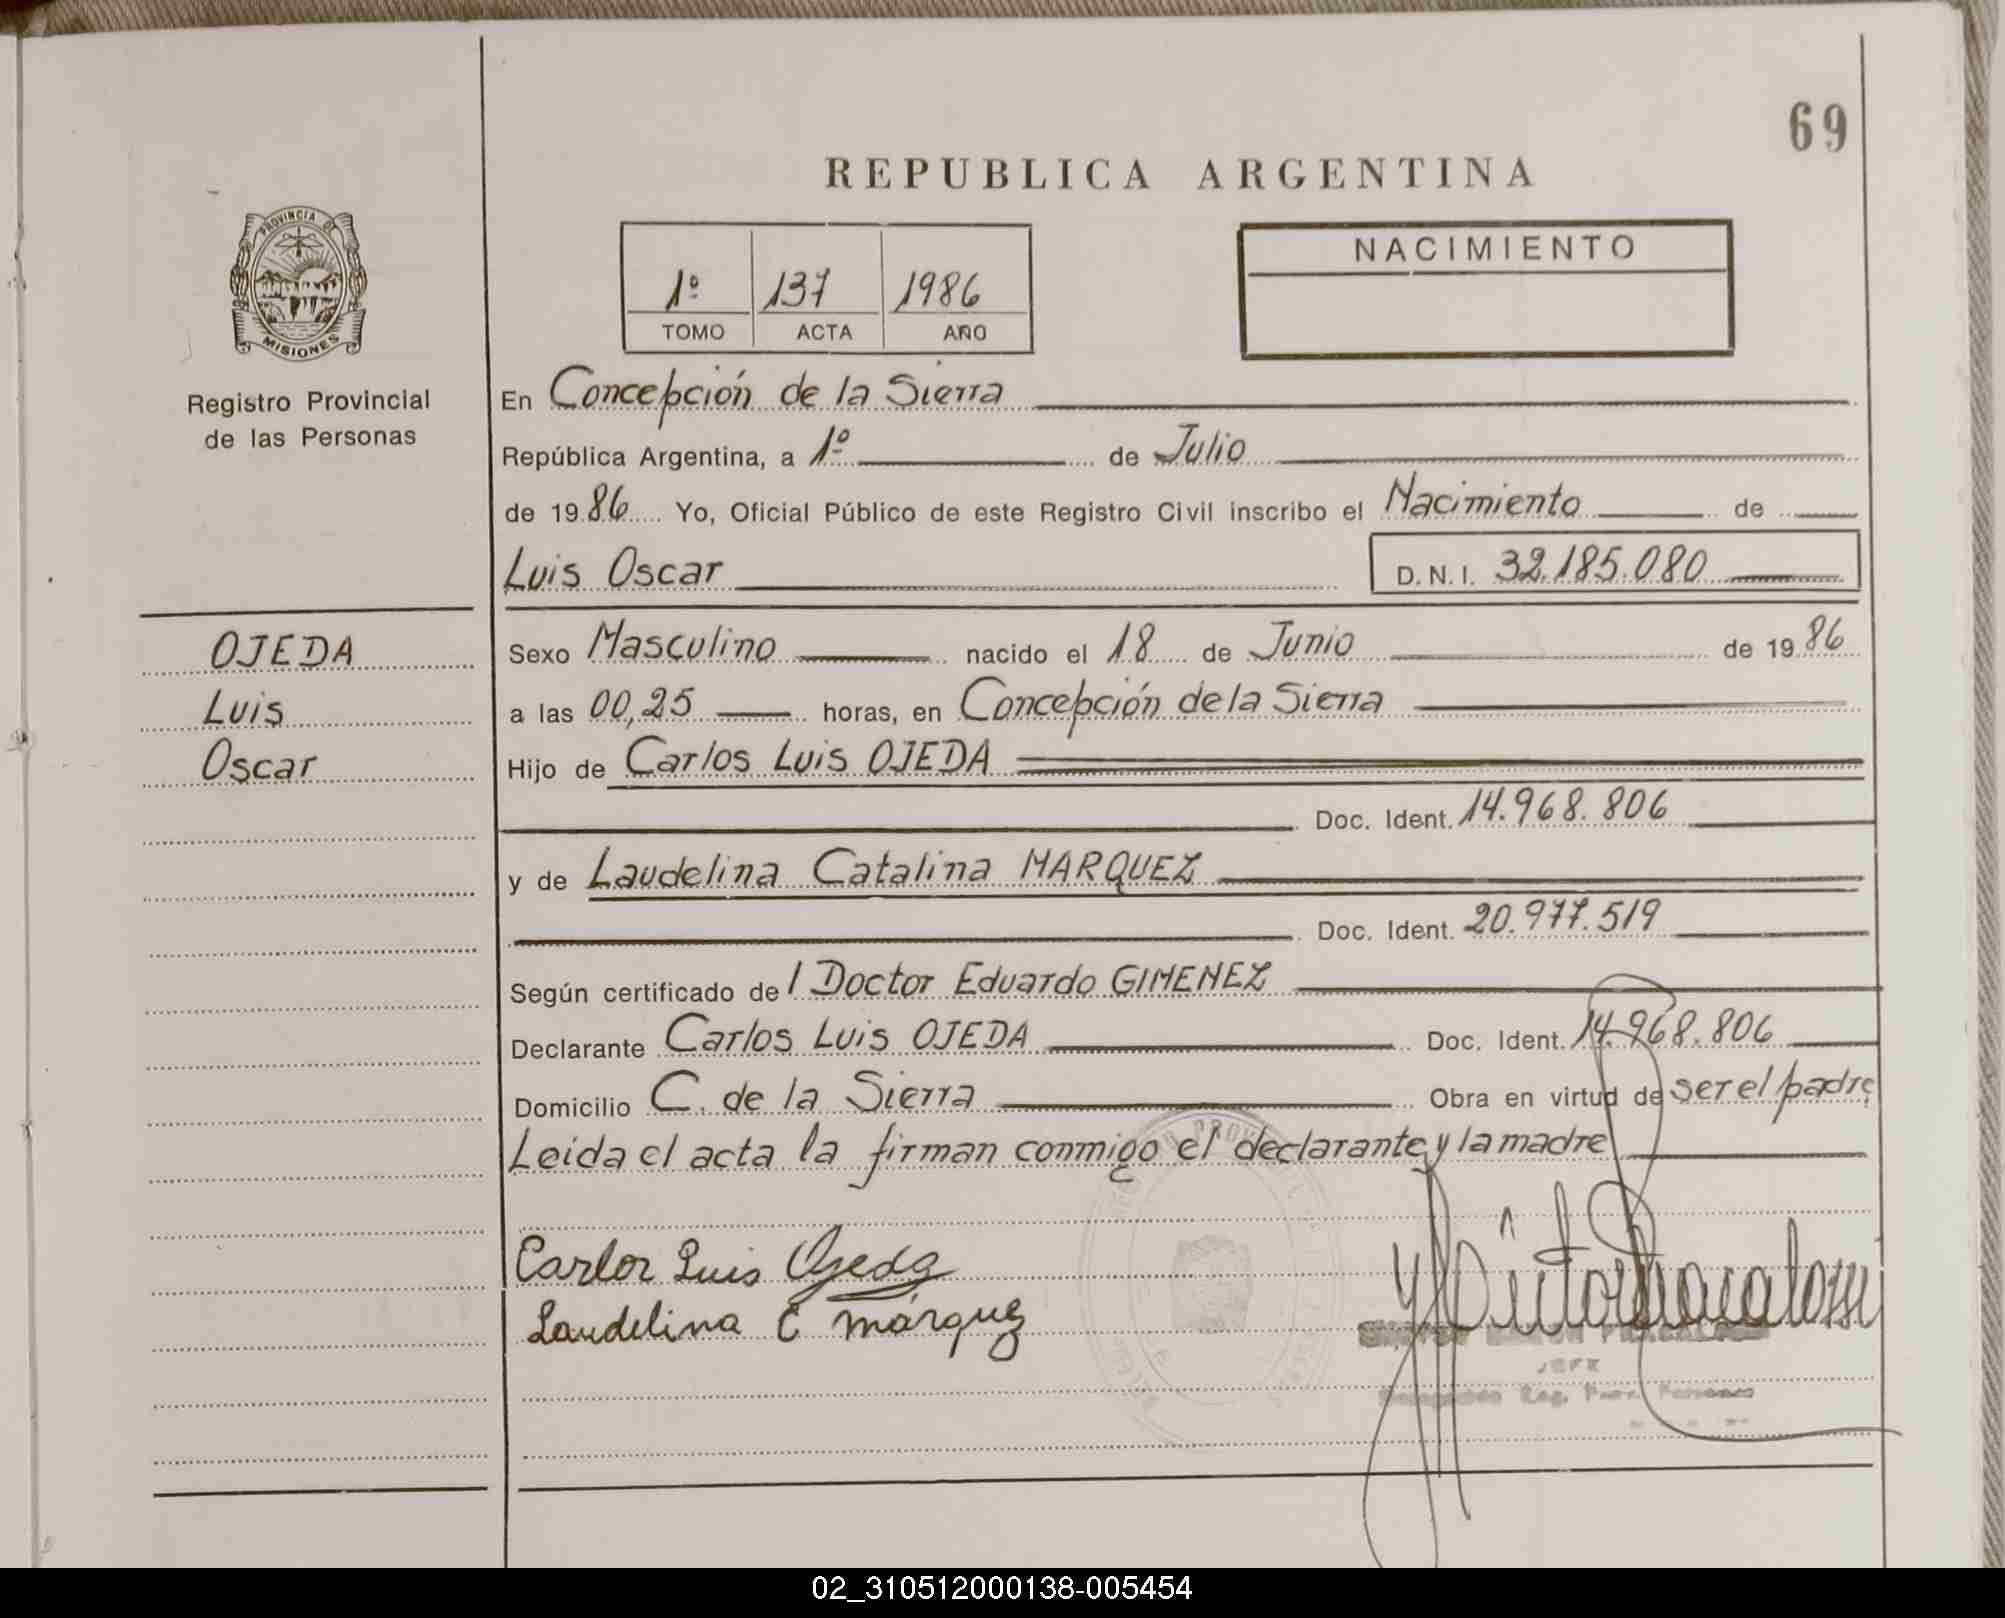 69
REPUBLICA ARGENTINA
PROVINCIA DE
MISIONES
Registro Provincial
de las Personas
1º 137 1986
TOMO ACTA AÑO
NACIMIENTO
En Concepción de la Sierra
República Argentina, a 1º de Julio
de 1986 Yo, Oficial Público de este Registro Civil inscribo el Nacimiento de
Luis Oscar D.N.I. 32.185.080
OJEDA
Luis
Oscar
Sexo Masculino nacido el 18 de Junio de 1986
a las 00,25 horas, en Concepción de la Sierra
Hijo de Carlos Luis OJEDA
Doc. Ident. 14.968.806
y de Laudelina Catalina MARQUEZ
Doc. Ident. 20.977.519
Según certificado de l Doctor Eduardo GIMENEZ
Declarante Carlos Luis OJEDA Doc. Ident. 14.968.806
Domicilio C. de la Sierra Obra en virtud de ser el padre
Leida el acta la firman conmigo el declarante y la madre
Carlos Luis Ojeda
Laudelina C márquez
JEFE
02_310512000138-005454